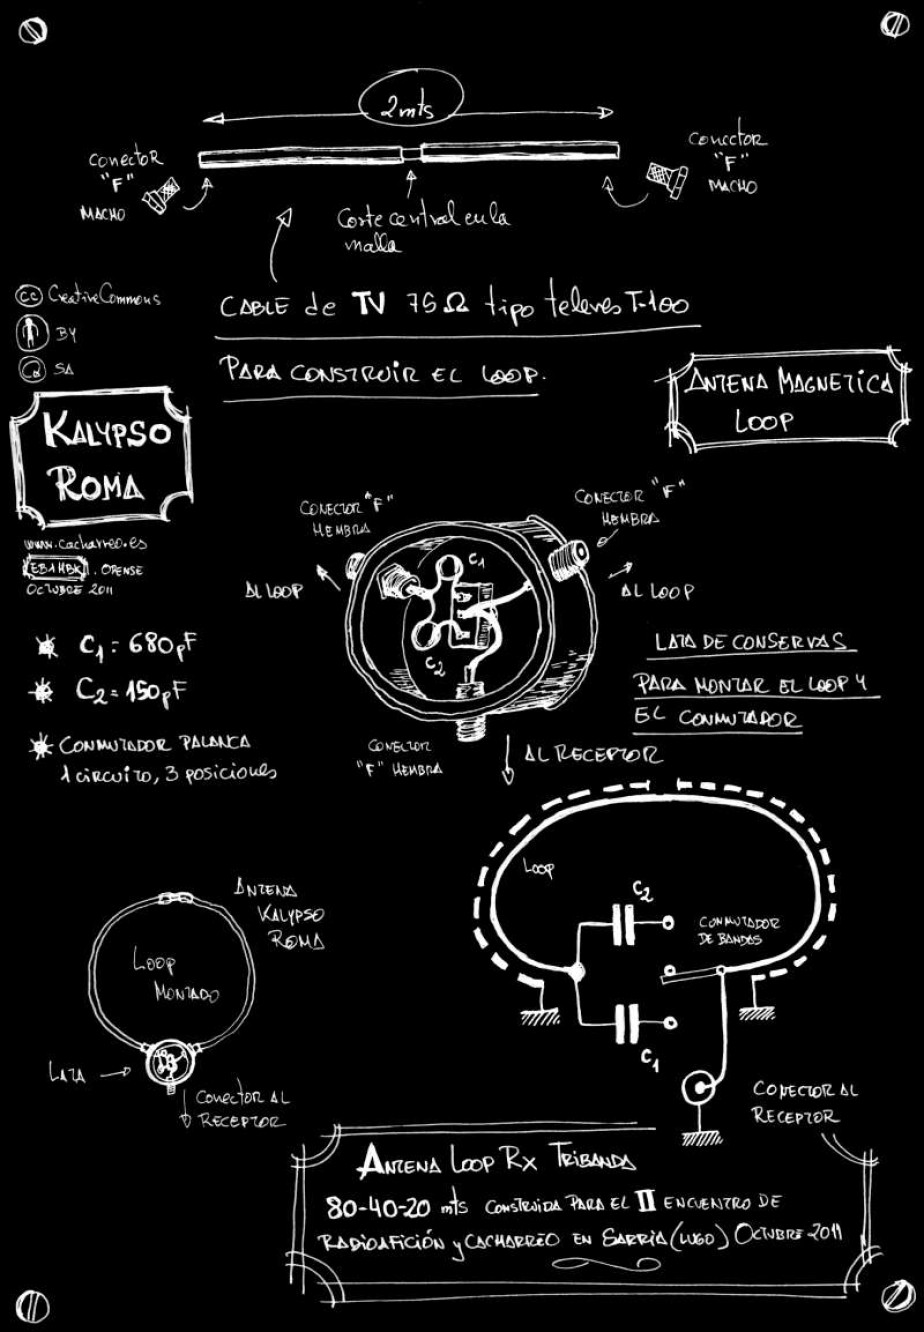 2mts
Conector
"F"
MACHO
Conector
"F"
MACHO
Corte central en la
malla
CABLE de TV 75Ω tipo televes T-100
PARA CONSTRUIR EL LOOP.
cc CreativeCommons
BY
SA
KALYPSO
ROMA
www.cacharreo.es
EB1HBK. ORENSE
OCTUBRE 2011
ANTENA MAGNETICA
LOOP
CONECTOR "F"
HEMBRA
CONECTOR "F"
HEMBRA
AL LOOP
AL LOOP
C1
C2
CONECTOR
"F" HEMBRA
AL RECEPTOR
LATA DE CONSERVAS
PARA MONTAR EL LOOP Y
EL CONMUTADOR
C1 = 680pF
C2 = 150pF
CONMUTADOR PALANCA
1 circuito, 3 posiciones
ANTENA
KALYPSO
ROMA
LOOP
MONTADO
LATA
Conector AL
RECEPTOR
Loop
C2
CONMUTADOR
DE BANDAS
C1
CONECTOR AL
RECEPTOR
ANTENA LOOP RX TRIBANDA
80-40-20 mts CONSTRUIDA PARA EL II ENCUENTRO DE
RADIOAFICIÓN y CACHARREO EN SARRIA (LUGO) OCTUBRE-2011